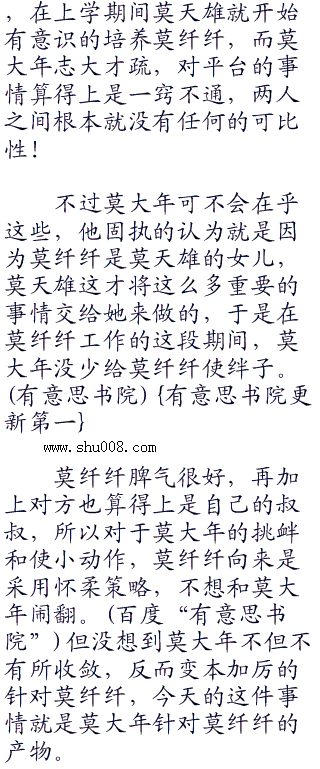 ，在上学期间莫天雄就开始
有意识的培养莫纤纤，而莫
大年志大才疏，对平台的事
情算得上是一窍不通，两人
之间根本就没有任何的可比
性！
不过莫大年可不会在乎
这些，他固执的认为就是因
为莫纤纤是莫天雄的女儿，
莫天雄这才将这么多重要的
事情交给她来做的，于是在
莫纤纤工作的这段期间，莫
大年没少给莫纤纤使绊子。
(有意思书院) {有意思书院更
新第一}
www.shu008.com
莫纤纤脾气很好，再加
上对方也算得上是自己的叔
叔，所以对于莫大年的挑衅
和使小动作，莫纤纤向来是
采用怀柔策略，不想和莫大
年闹翻。(百度“有意思书
院”) 但没想到莫大年不但不
有所收敛，反而变本加厉的
针对莫纤纤，今天的这件事
情就是莫大年针对莫纤纤的
产物。